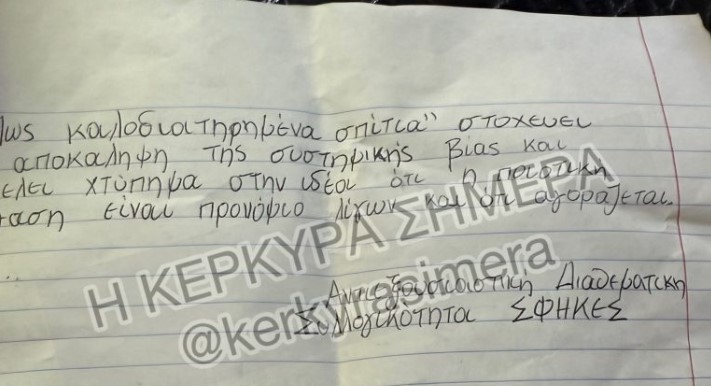 λως καλοδιατηρημένα σπίτια" στοχευει
αποκαληψη της συστημικής βίας και
ελει χτύπημα στην ιδέα ότι η ποιοτική
ταση είναι προνόμιο λίγων και ότι αγοράζεται.
..
Αντιεξουσιαστικη Διαθεματικη
Συλλογικότητα ΣΦΗΚΕΣ
Η ΚΕΡΚΥΡΑ ΣΗΜΕΡΑ
@kerkyrasimera